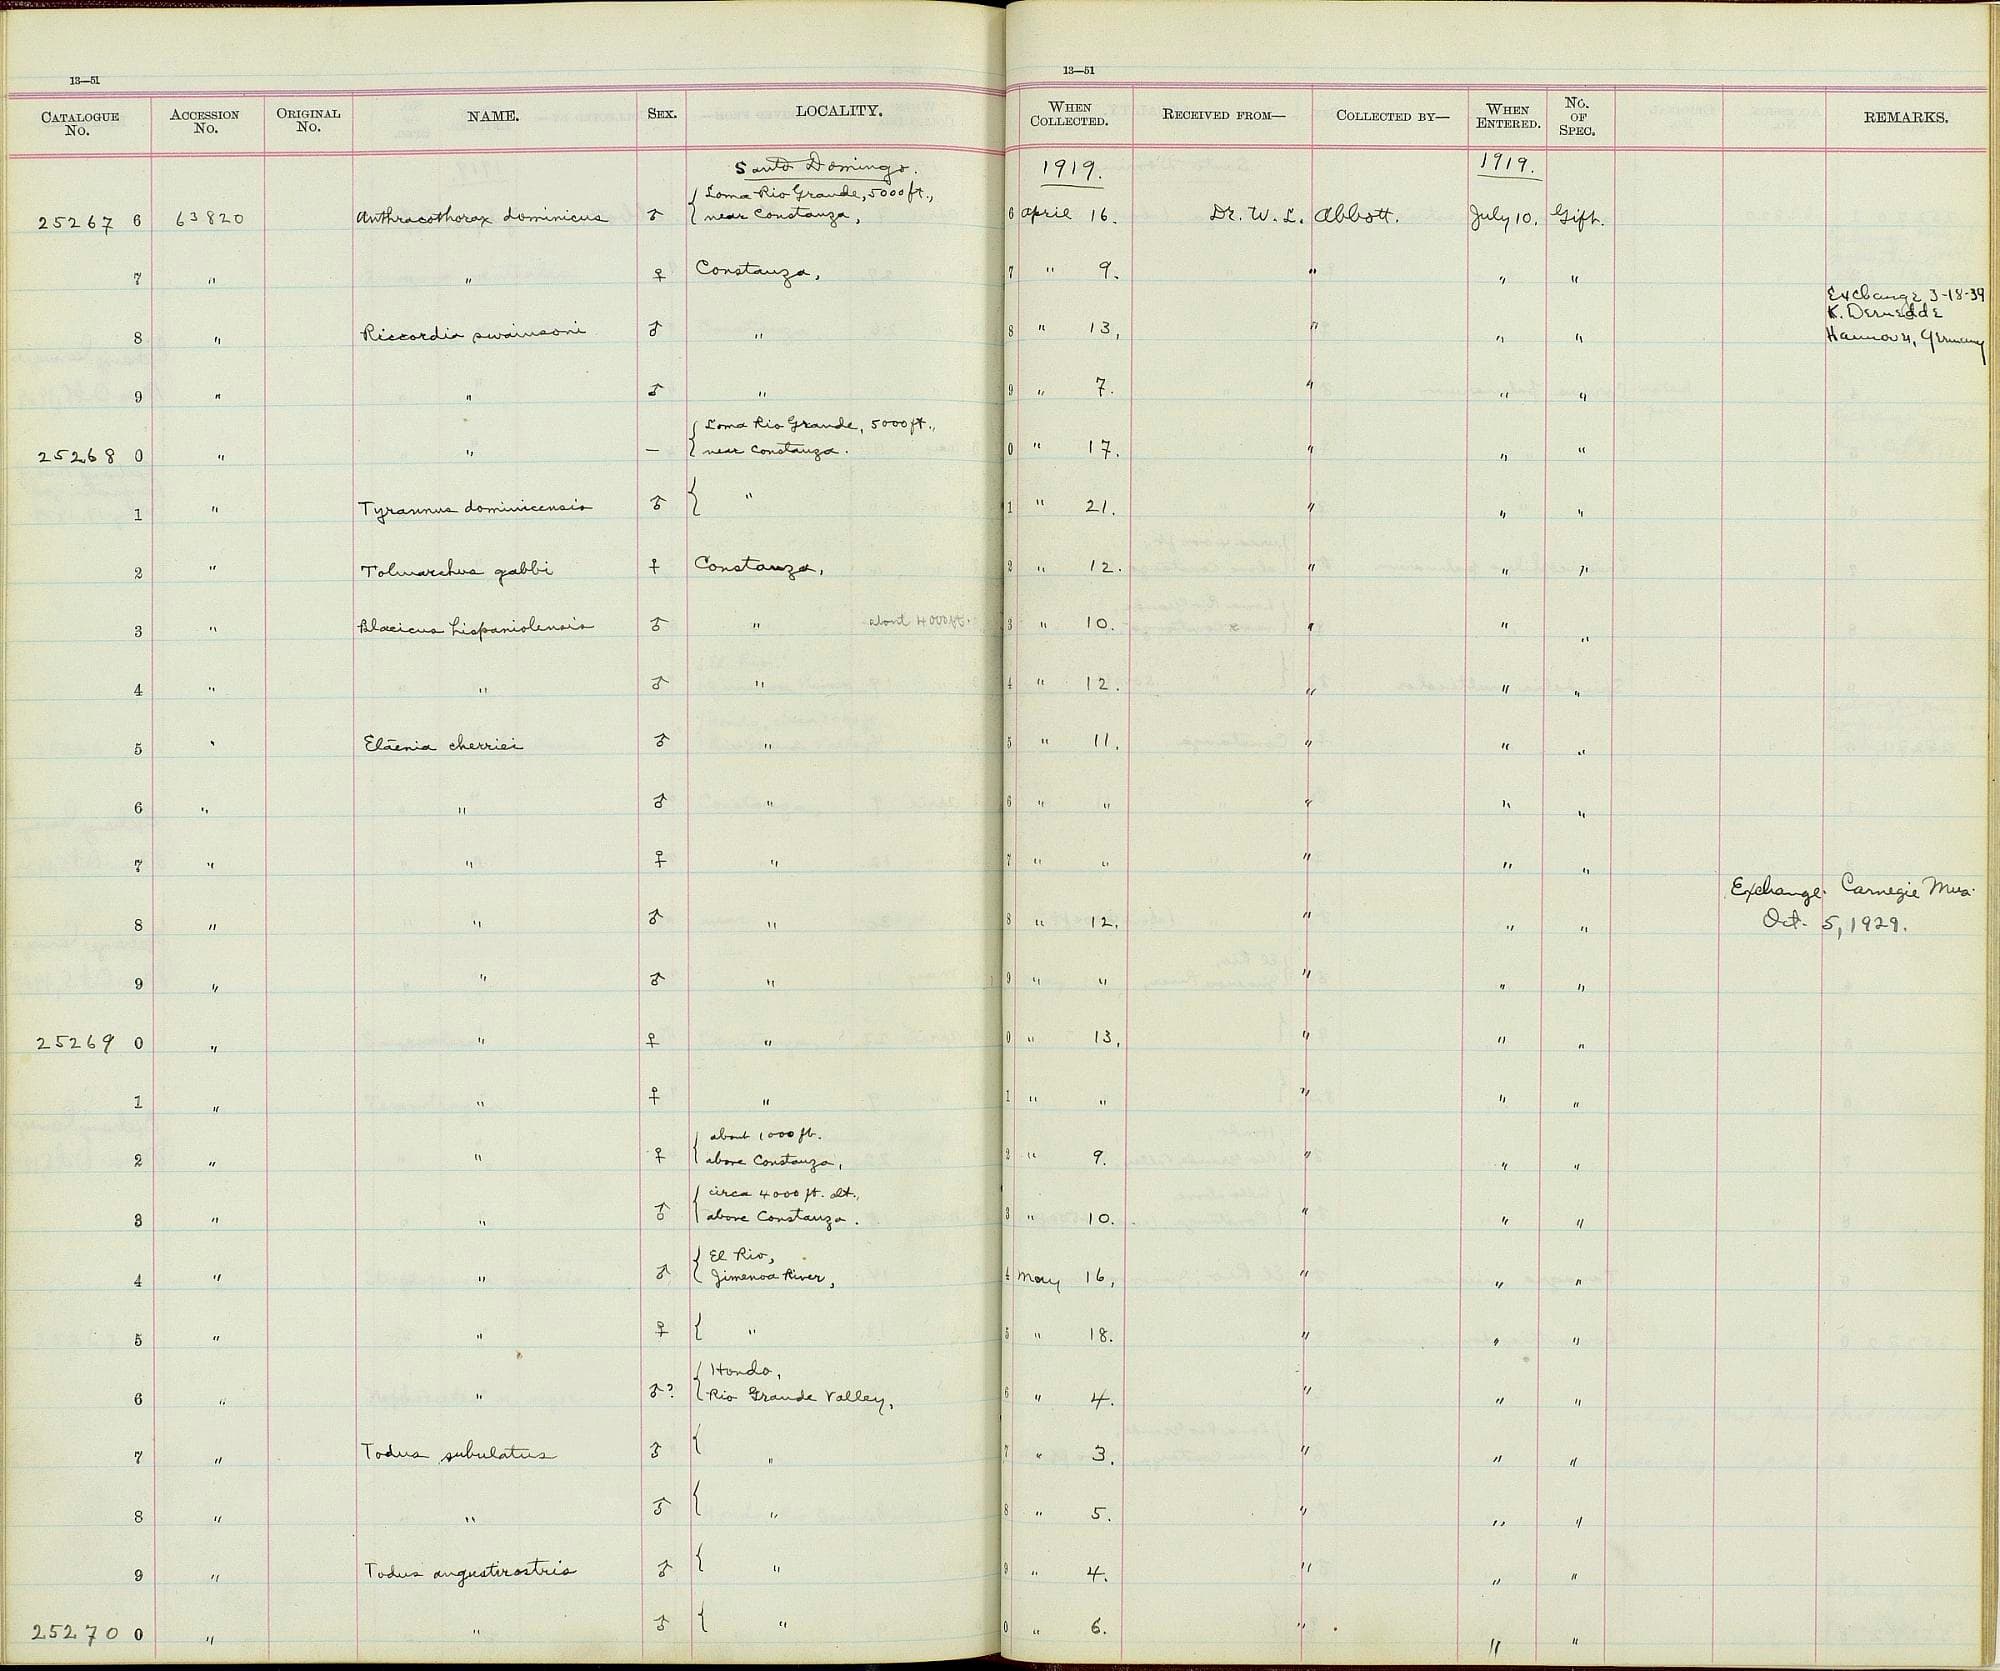 13—51
13—51
CATALOGUE No. ACCESSION No. ORIGINAL No. NAME. SEX. LOCALITY. WHEN COLLECTED. RECEIVED FROM— COLLECTED BY— WHEN ENTERED. NO. OF SPEC. REMARKS.
Santo Domingo. 1919. 1919.
25267 6 63820 Anthracothorax dominicus ♂ { Loma Rio Grande, 5000 ft., near Constanza, 6 April 16. Dr. W. L. Abbott. July 10. Gift.
7 " " ♀ Constanza, 7 " 9. " " "
8 " Riccordia swainsoni ♂ " 8 " 13, " " " Exchange 3-18-39 K. Dernedde Hannover, Germany
9 " " ♂ " 9 " 7. " " "
25268 0 " " — { Loma Rio Grande, 5000 ft., near Constanza. 0 " 17. " " "
1 " Tyrannus dominicensis ♂ { " 1 " 21. " " "
2 " Tolmarchus gabbi ♀ Constanza, 2 " 12. " " "
3 " Blacicus hispaniolensis ♂ " about 4000 ft. 3 " 10. " " "
4 " " ♂ " 4 " 12. " " "
5 " Elaenia cherriei ♂ " 5 " 11. " " "
6 " " ♂ " 6 " " " " "
7 " " ♀ " 7 " " " " "
8 " " ♂ " 8 " 12. " " " Exchange. Carnegie Mus. Oct. 5, 1929.
9 " " ♂ " 9 " " " " "
25269 0 " " ♀ " 0 " 13, " " "
1 " " ♀ " 1 " " " " "
2 " " ♀ { about 1000 ft. above Constanza, 2 " 9. " " "
3 " " ♂ { circa 4000 ft. alt., above Constanza. 3 " 10. " " "
4 " " ♂ { El Rio, Jimenoa River, 4 May 16, " " "
5 " " ♀ { " 5 " 18. " " "
6 " " ♂? { Hondo, Rio Grande Valley, 6 " 4. " " "
7 " Todus subulatus ♂ { " 7 " 3. " " "
8 " " ♂ { " 8 " 5. " " "
9 " Todus angustirostris ♂ { " 9 " 4. " " "
25270 0 " " ♂ { " 0 " 6. " " "